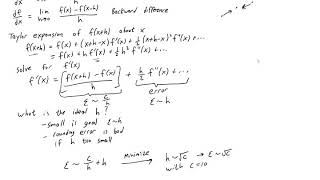 dx h→0 h
df/dx = lim h→0 (f(x)-f(x-h))/h Backward difference
Taylor expansion of f(x+h) about x
f(x+h) = f(x) + (x+h-x) f'(x) + ½(x+h-x)² f''(x) + ...
= f(x) + h f'(x) + ½h² f''(x) + ...
solve for f'(x)
f'(x) = [(f(x+h) - f(x))/h] + h/2 f''(x) + ...
ε ~ c/h error ε ~ h
what is the ideal h?
- small is good ε~h
- rounding error is bad
if h too small
ε ~ c/h + h minimize → h ~ √c → ε ~ √c
with c=10